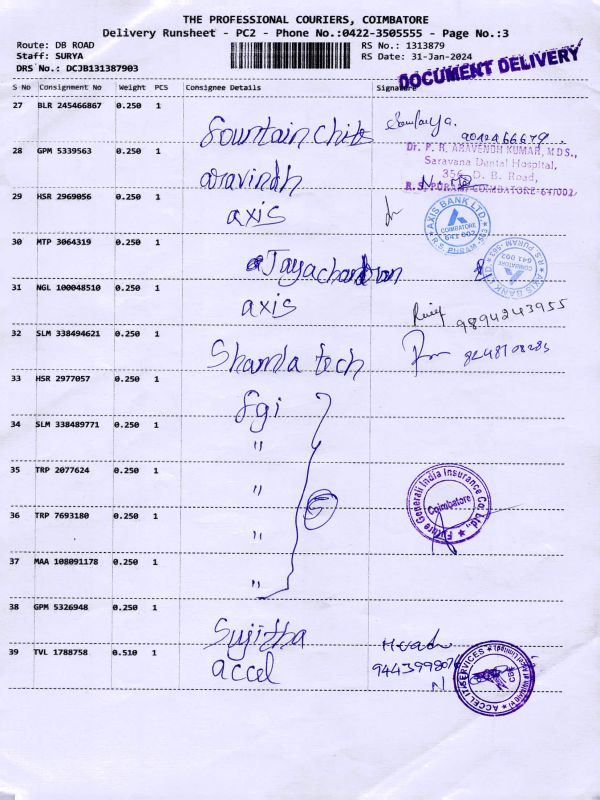 THE PROFESSIONAL COURIERS, COIMBATORE
Delivery Runsheet - PC2 - Phone No.:0422-3505555 - Page No.:3
Route: DB ROAD RS No.: 1313879
Staff: SURYA RS Date: 31-Jan-2024
DRS No.: DCJB131387903
DOCUMENT DELIVERY
S No Consignment No Weight PCS Consignee Details Signature
27 BLR 245466867 0.250 1
fountain
28 GPM 5339563 0.250 1
Dr. P. R. ARAVENDH KUMAR, M.D.S.,
Saravana Dental Hospital,
356, D. B. Road,
R.S. PURAM, COIMBATORE-641002
aravindh
29 HSR 2969056 0.250 1
axis
AXIS BANK LTD
COIMBATORE
641 002
R.S. PURAM
30 MTP 3064319 0.250 1
Jayachandran
AXIS BANK LTD
COIMBATORE
641 002
R.S. PURAM
31 NGL 100048510 0.250 1
axis
9894243955
32 SLM 338494621 0.250 1
Shamla tech
33 HSR 2977057 0.250 1
fgi
34 SLM 338489771 0.250 1
"
35 TRP 2077624 0.250 1
"
Future Generali India Insurance Co. Ltd.,
Coimbatore
36 TRP 7693180 0.250 1
"
5
37 MAA 108091178 0.250 1
"
38 GPM 5326948 0.250 1
Sujitha
39 TVL 1788758 0.510 1
accel
ACCEL IT SERVICES